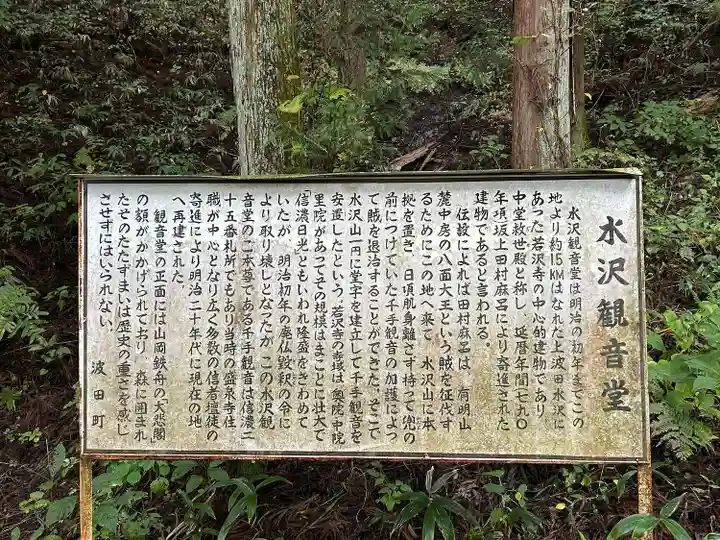 水沢観音堂
水沢観音堂は明治の初年までこの
地より約1.5KMはなれた上波田水沢に
あった若沢寺の中心的建物であり、
中堂救世殿と称し、延暦年間(七九〇
年頃坂上田村麻呂により寄進された
建物であると言われる。
伝説によれば田村麻呂は 有明山
麓中房の八面大王という賊を征伐す
るためにこの地へ来て 水沢山に本
拠を置き 日頃肌身離さず持って兜の
前につけていた千手観音の加護によっ
て賊を退治することができた。そこで
水沢山一円に堂宇を建立して千手観音を
安置したという。若沢寺の寺域は 奥院 中院
里院があってその規模はまことに壮大で
「信濃日光ともいわれ隆盛をきわめて
いたが 明治初年の廃仏毀釈の令に
より取り壊しとなったが この水沢観
音堂のご本尊である千手観音は信濃二
十五番札所でもあり当時の盛泉寺住
職が中心となり広く多数の信者壇徒の
寄進により明治二十年代に現在の地
へ再建された
観音堂の正面には山岡鉄舟の大悲閣
の額がかかげられており 森に囲まれ
たそのたたずまいは歴史の重さを感じ
させずにはいられない。
波田町